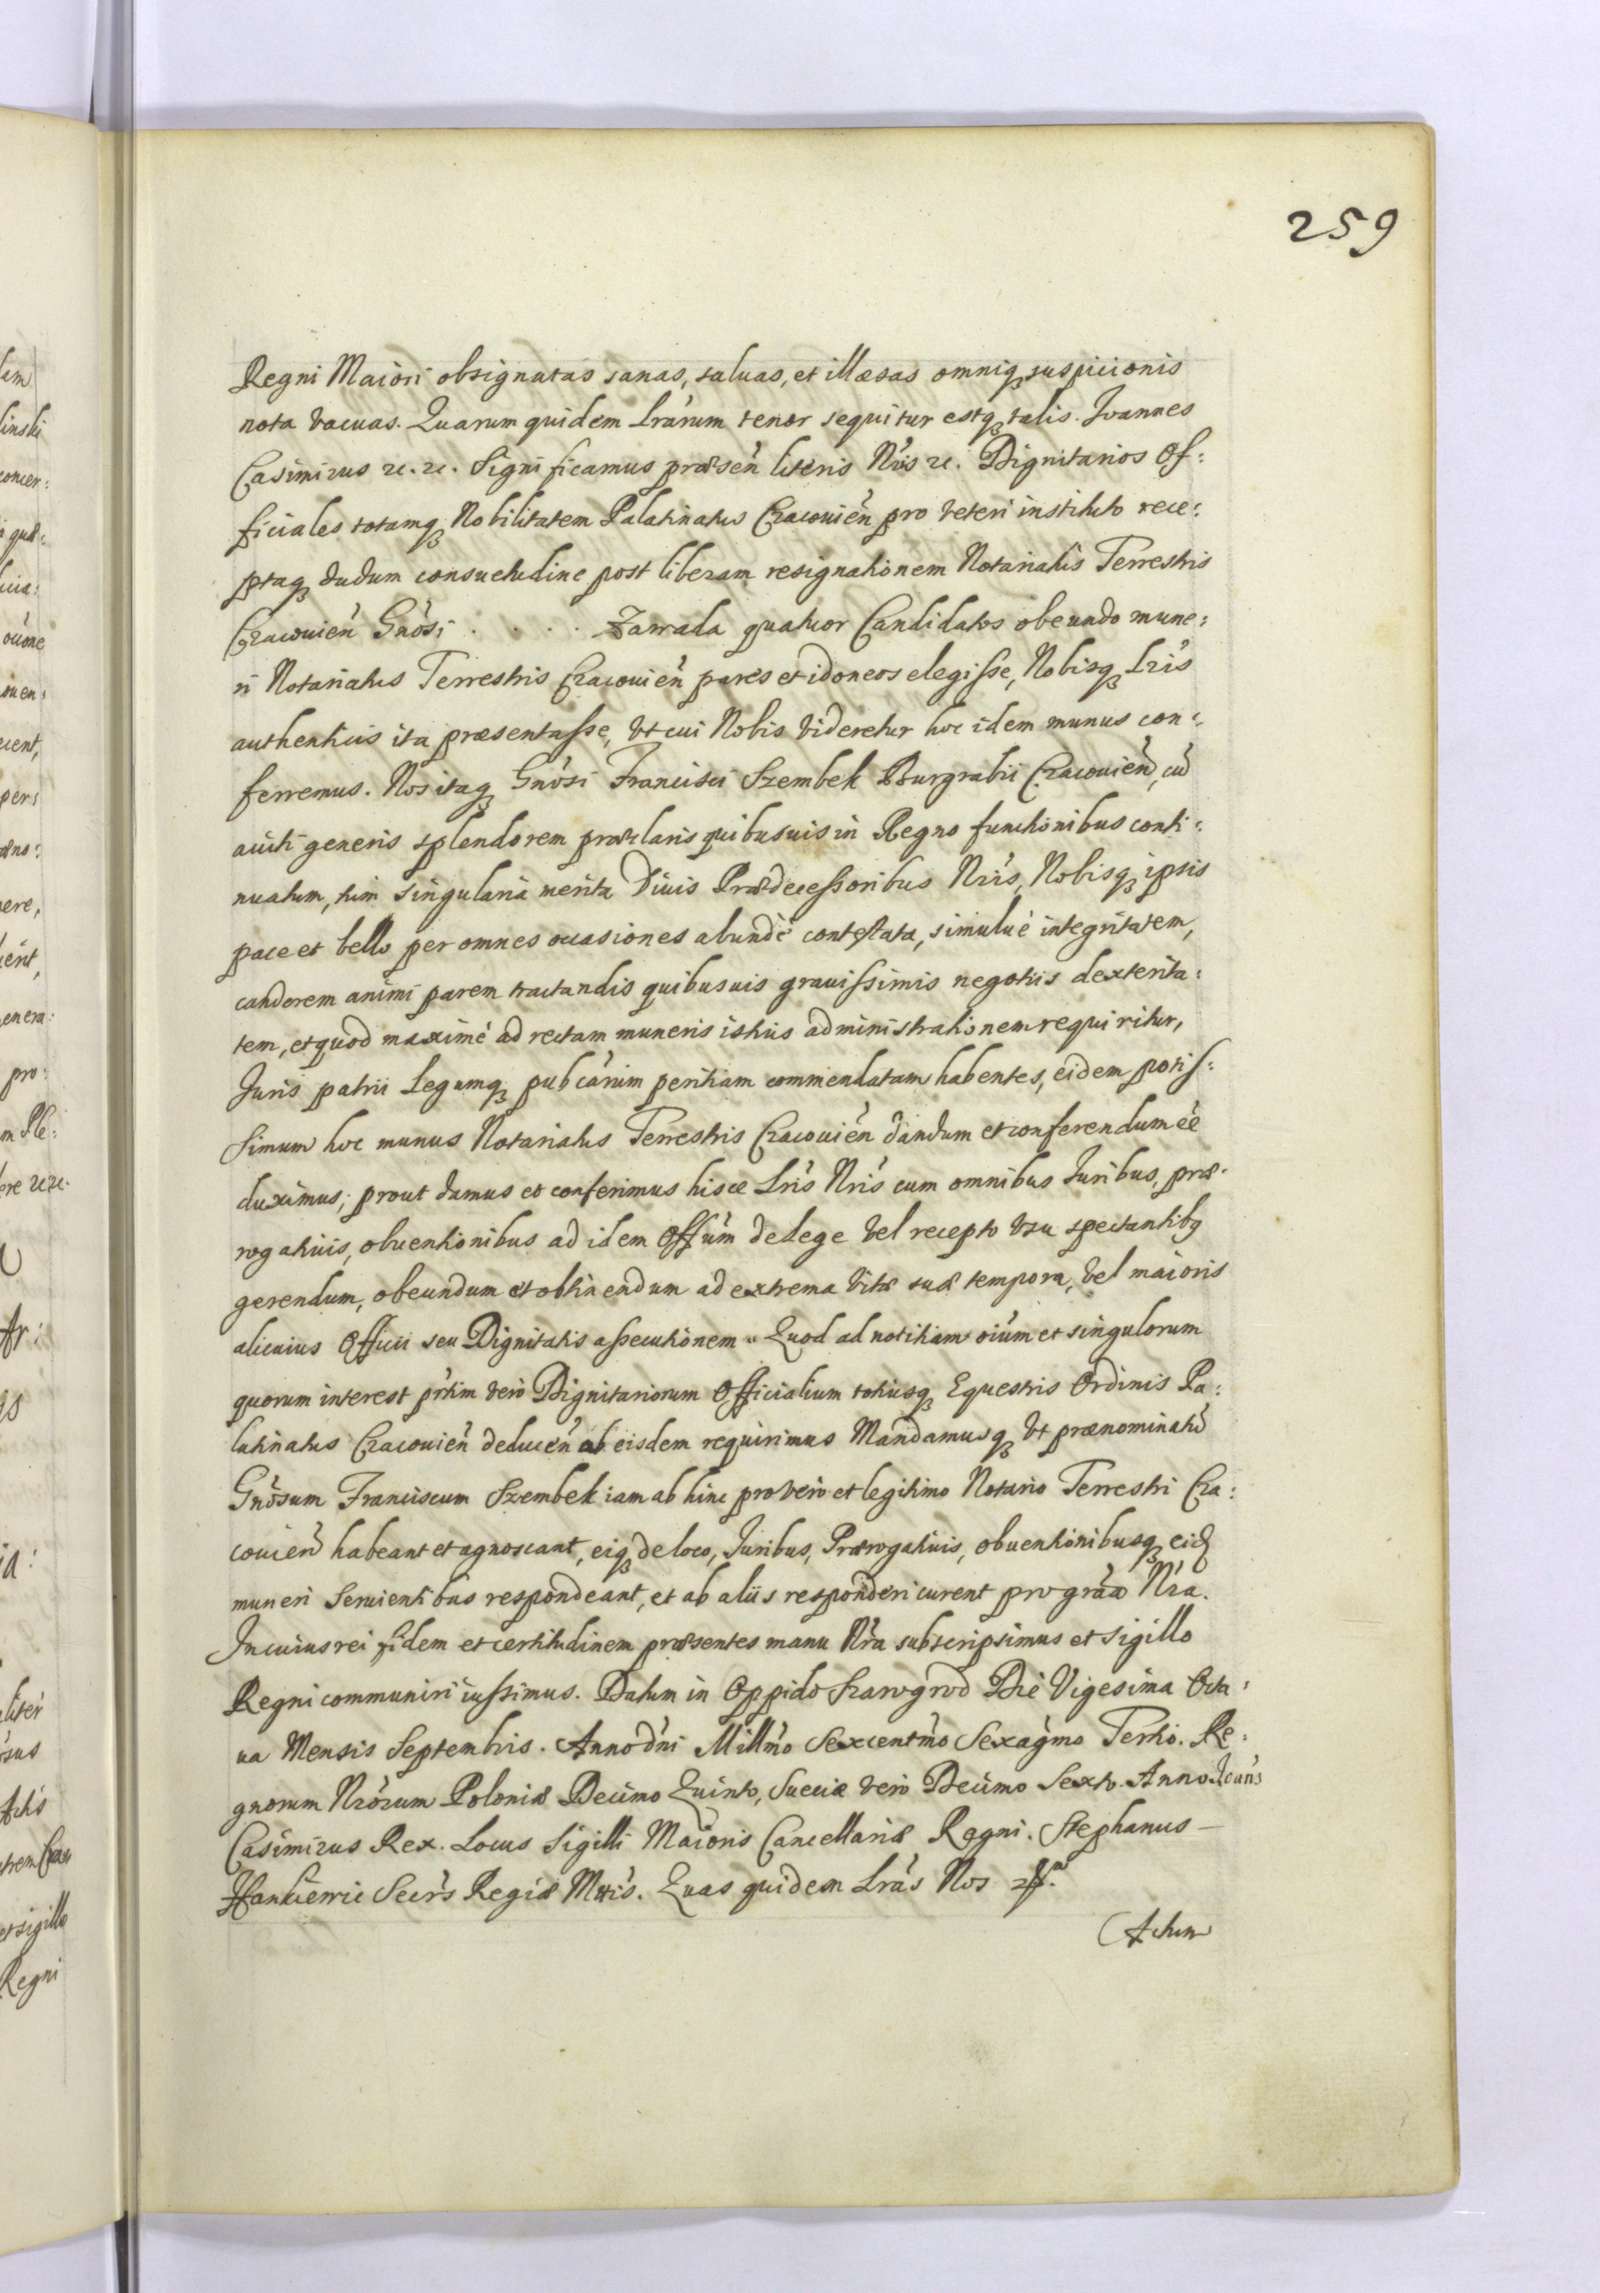 259
Regni Maiori obsignatas sanas, saluas, et illæsas omniq suspicionis
nota vacuas. Quarum quidem Lrarum tenor sequitur estq talis. Joannes
Casimirus &c. &c. Significamus præsen literis Nris &c. Dignitarios Of:
ficiales totamq Nobilitatem Palatinatus Cracouien pro veteri instituto rece:
ptaq dudum consuetudine post liberam resignationem Notariatus Terrestris
Cracouien Gnosi . . . . Zawada quatuor Candidatos obeundo mune:
ri Notariatus Terrestris Cracouien pares et idoneos elegisse, Nobisq Lris
authenticis ita præsentasse, vt cui Nobis videretur hoc idem munus con:
ferremus. Nos itaq Gnosi Francisci Szembek Burgrabii Cracouien, cu
auiti generis splendorem præclaris quibusuis in Regno functionibus conti:
nuatum, tum singularia merita Diuis Prædecessoribus Nris, Nobisq ipsis
pace et bello per omnes occasiones abundè contestata, simulue integritatem,
candorem animi parem tractandis quibusuis grauissimis negotiis dexterita:
tem, et quod maximè ad rectam muneris istius administrationem requiritur,
Juris patrii Legumq pubcarum peritiam commendatam habentes, eidem potis:
simum hoc munus Notariatus Terrestris Cracouien dandum et conferendum ee
duximus; prout damus et conferimus hisce Lris Nris cum omnibus Juribus, præ:
rogatiuis, obuentionibus ad idem Offum de lege vel recepto vsu spectantibq
gerendum, obeundum et obtinendum ad extrema vitæ suæ tempora, vel maioris
alicuius Officii seu Dignitatis assecutionem. Quod ad notitiam oium et singulorum
quorum interest prtim vero Dignitariorum Officialium totiusq Equestris Ordinis Pa:
latinatus Cracouien deducen ab eisdem requirimus Mandamusq vt prænominatu
Gnosum Franciscum Szembek iam ab hinc pro vero et legitimo Notario Terrestri Cra:
couien habeant et agnoscant, eiq de loco, Juribus, Prærogatiuis, obuentionibusq eid
muneri seruientibus respondeant, et ab aliis responderi curent pro graa Nra.
In cuius rei fidem et certitudinem præsentes manu Nra subscripsimus et sigillo
Regni communiri iussimus. Datum in Oppido Szarogrod Die Vigesima Octa:
ua Mensis Septembris. Anno dni Millmo Sexcentmo Sexagmo Tertio. Re:
gnorum Nrorum Poloniæ Decimo Quinto, Sueciæ vero Decimo Sexto. Anno Joans
Casimirus Rex. Locus Sigilli Maioris Cancellariæ Regni. Stephanus —
Hankiewic Secrs Regiæ Mtis. Quas quidem Lras Nos
Actum